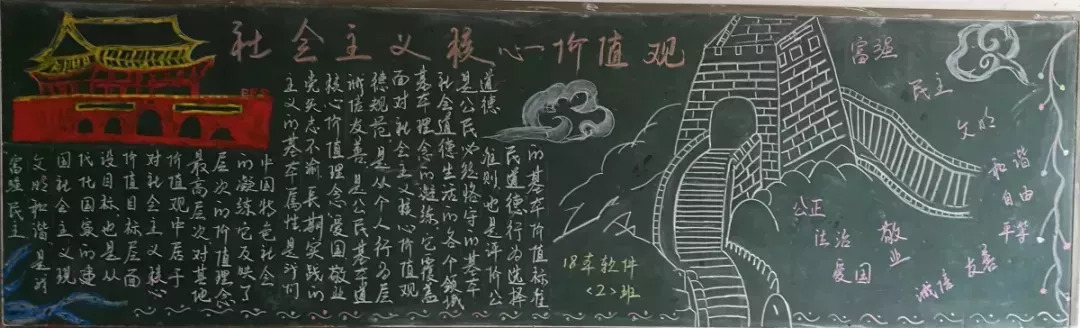 社会主义核心价值观
富强民主
文明和谐,是我
国社会主义现
代化国家的建
设目标,也是从
价值目标层面
对社会主义核心
价值观中居于
最高层次对其他
层次的价值理念
的凝练它反映了
中国特色社会
主义的基本属性是我们
党矢志不渝长期实践的
核心价值理念,爱国敬业
诚信友善是公民基本道
德规范是从个人行为层
面对社会主义核心价值观
基本理念的凝练,它覆盖
社会道德生活的各个领域
是公民必须恪守的基本
道德准则,也是评价公
民道德行为选择
的基本价值标准
18本软件
<2>班
富强
民主
文明
和谐
自由
平等
公正
法治
爱国
敬业
诚信
友善